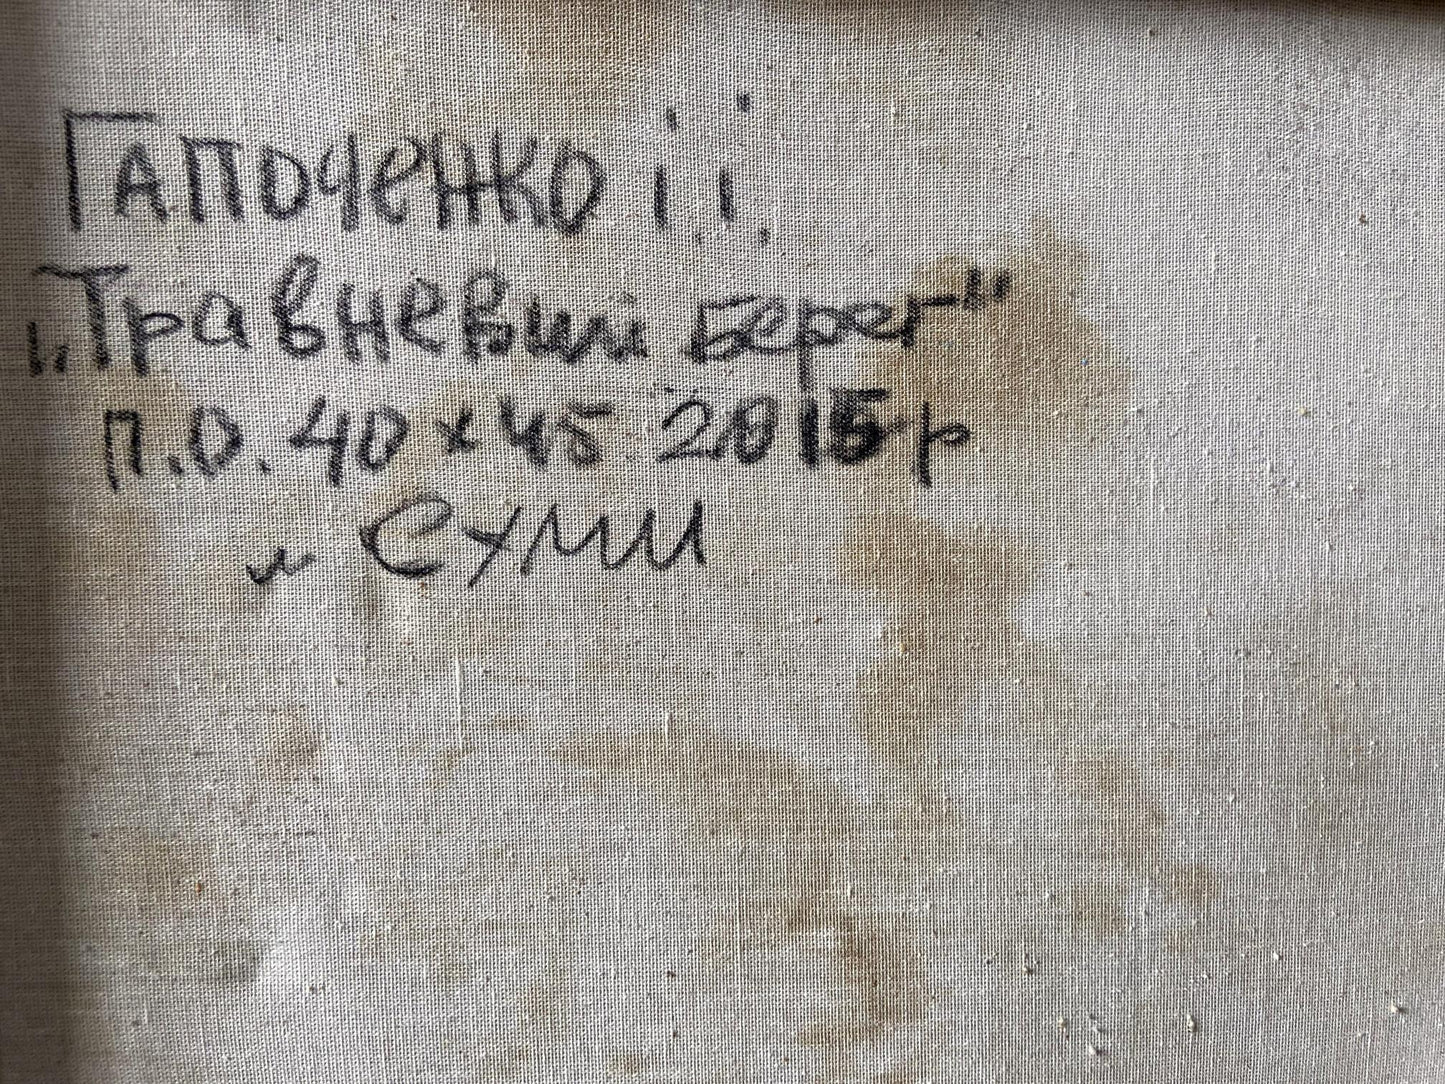 Гапоченко і.і.
„Травневий берег"
п.о. 40 х 45 2015р
м Суми